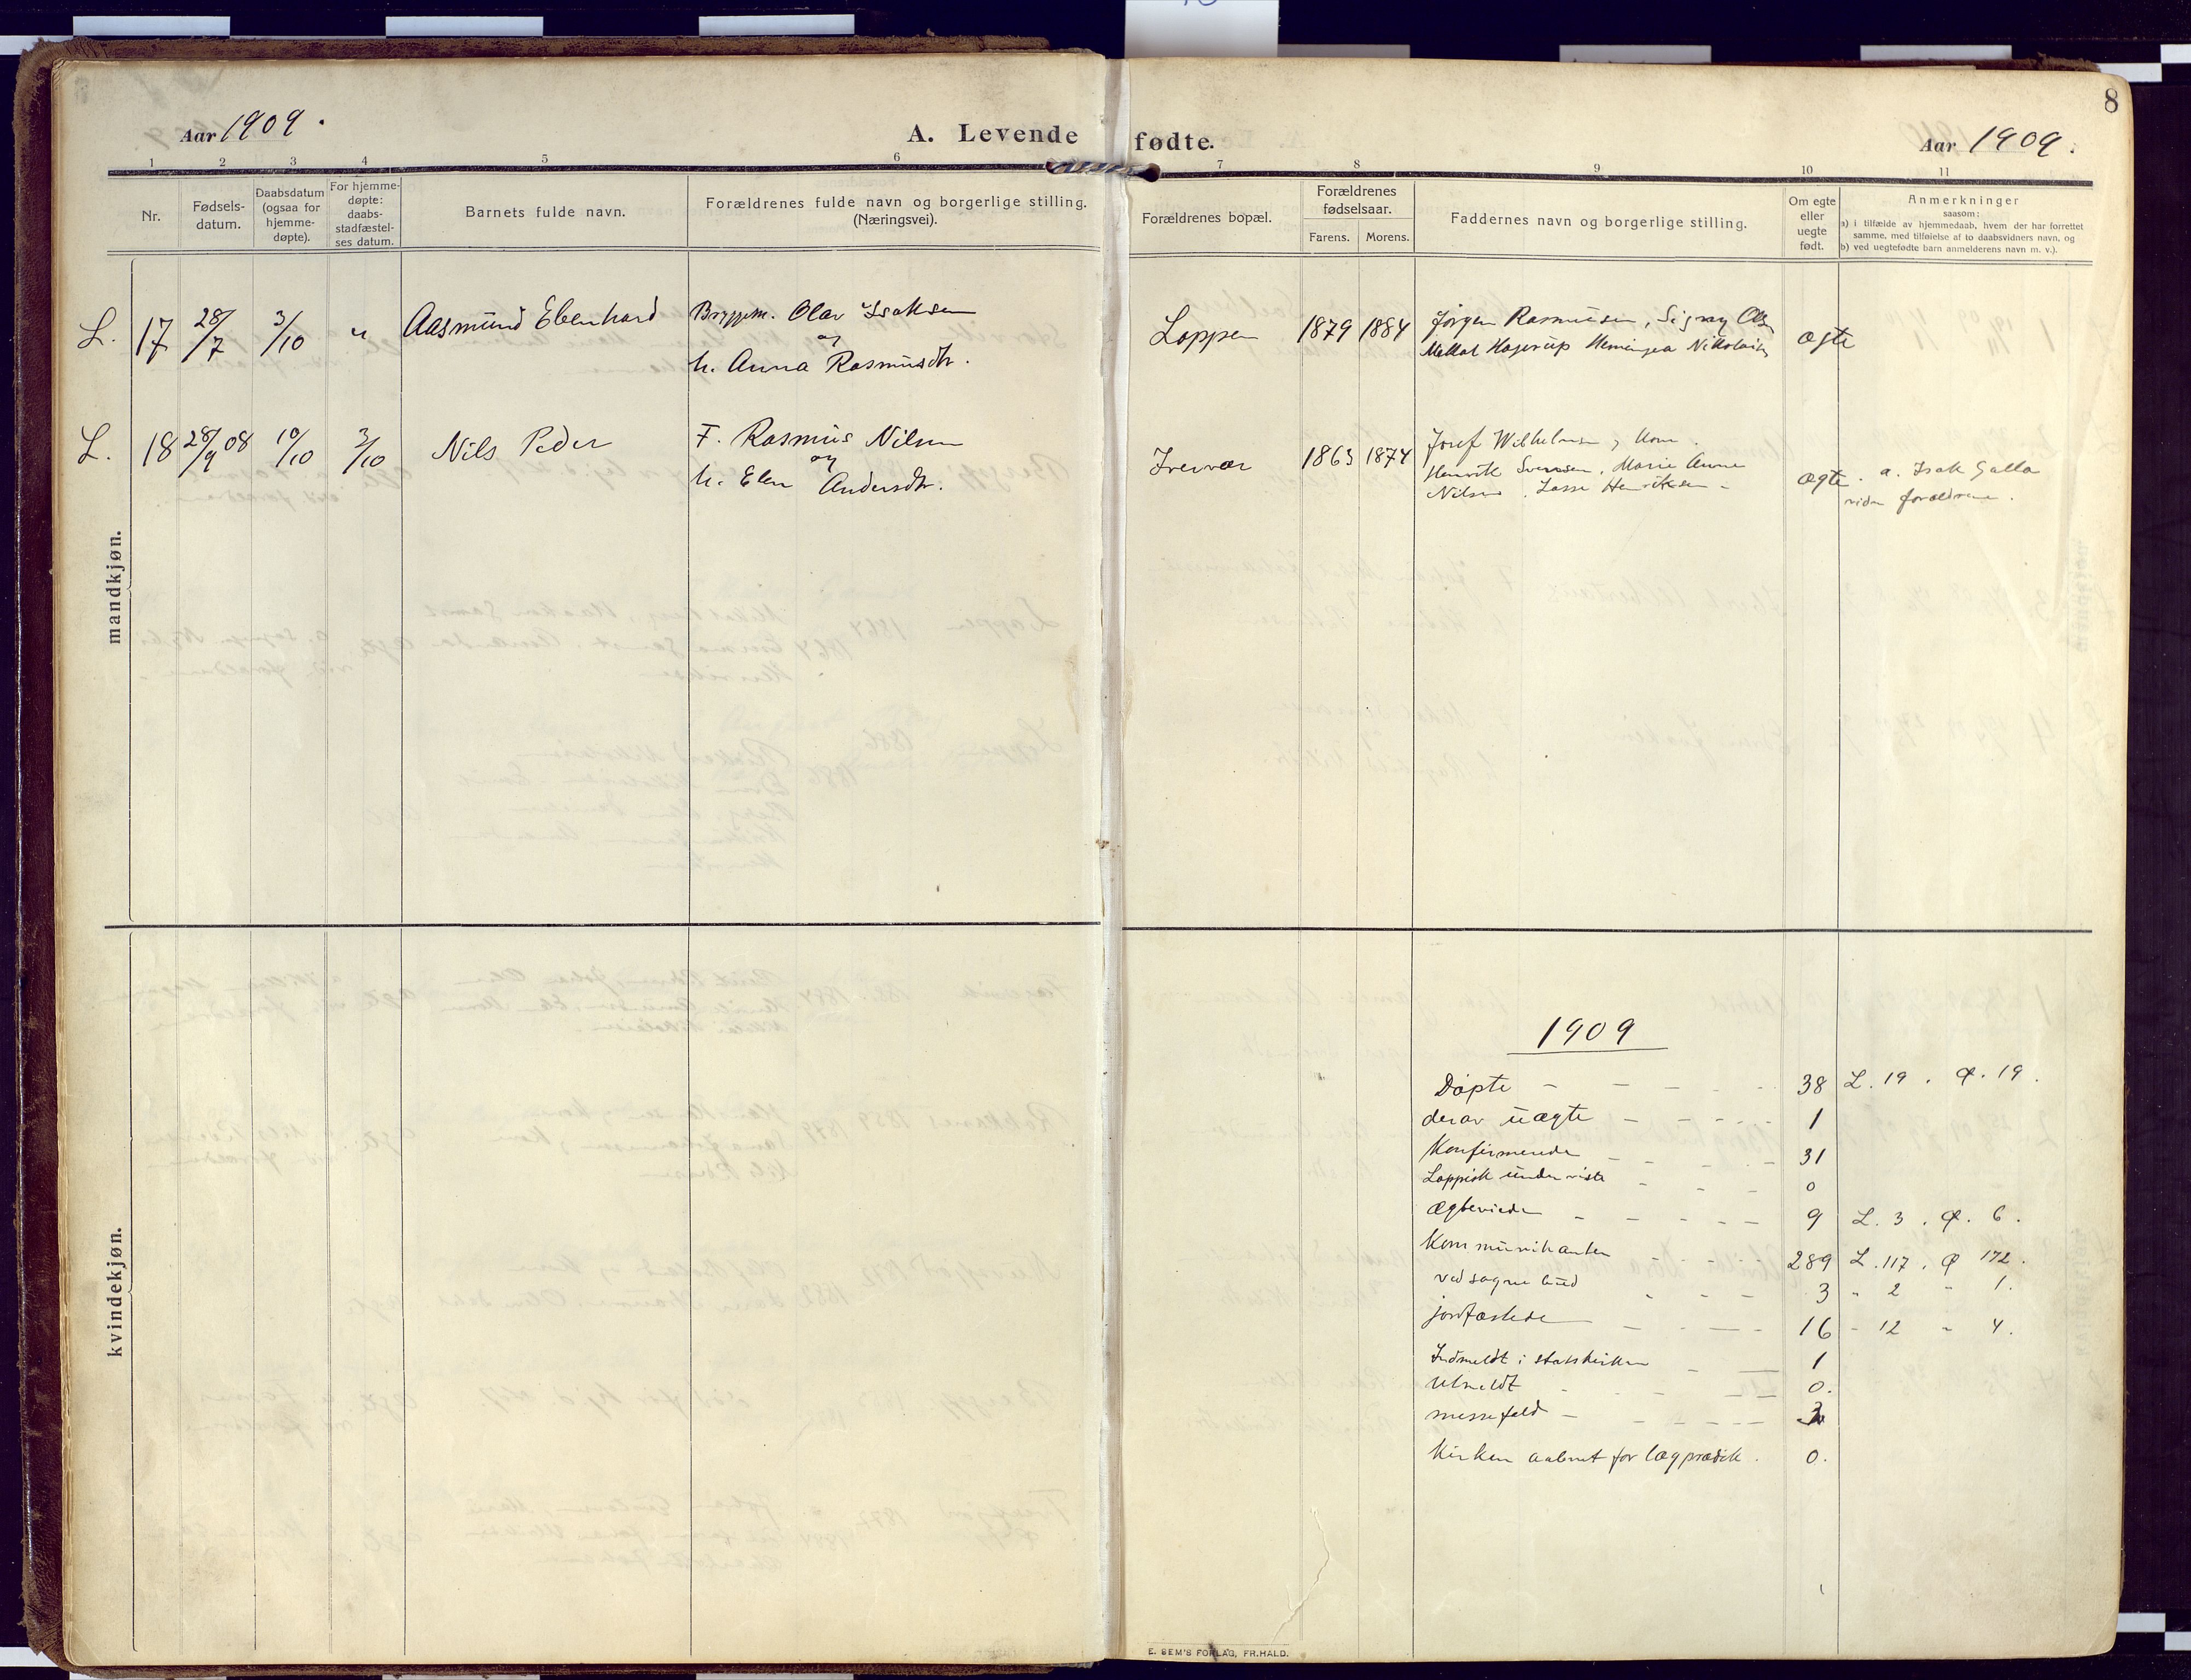 8
Aar 1909.
A. Levende fødte.
Aar 1909.
1 2 3 4 5 6 7 8 9 10 11
Nr.
Fødsels-
datum.
Daabsdatum
(ogsaa for
hjemme-
døpte).
For hjemme-
døpte:
daabs-
stadfæstel-
ses datum.
Barnets fulde navn.
Forældrenes fulde navn og borgerlige stilling.
(Næringsvei).
Forældrenes bopæl.
Forældrenes
fødselsaar.
Farens. Morens.
Faddernes navn og borgerlige stilling.
Om egte
eller
uegte
født.
Anmerkninger
saasom:
a) i tilfælde av hjemmedaab, hvem der har forrettet
samme, med tilføielse af to daabsvidners navn, og
b) ved uegtefødte barn anmelderens navn m. v.).
mandkjøn.
L. 17 28/7 3/10 " Aasmund Ebenhard
Bryggem. Olav Isaksen
og
h. Anna Rasmusdtr.
Loppen 1879 1884
Jørgen Rasmussen, Signy Ols.
Hagerup Nikolais
ægte
L. 18 28/9 08 10/10 3/10 Nils Peder
F. Rasmus Nilsen
og
h. Elen Andersdtr.
1863 1874
Josef Wilhelmsen, kone.
Henrik Svensen, Marie Anne
Nilsen, Lasse Henriksen
ægte. a. Isak Galla
vidn forældrene.
kvindekjøn.
1909
Døpte - - - - 38 L. 19. Q. 19.
derav uægte - - - - 1
Konfirmerede - - - - 31
Lappisk underviste - - - 0
Ægteviede - - - - 9 L. 3. Q. 6.
Kommunikanter - - - 289 L. 117. Q 172.
ved sognebud - - - 3 " 2 " 1.
jordfæstede - - - - 16 - 12 " 4.
Indmeldt i statskirken - — 1
Utmeldt - - - — 0.
messefald - - - - 3
Kirken aabnet for lægprædik. 0.
E. SEM'S FORLAG, FR.HALD.